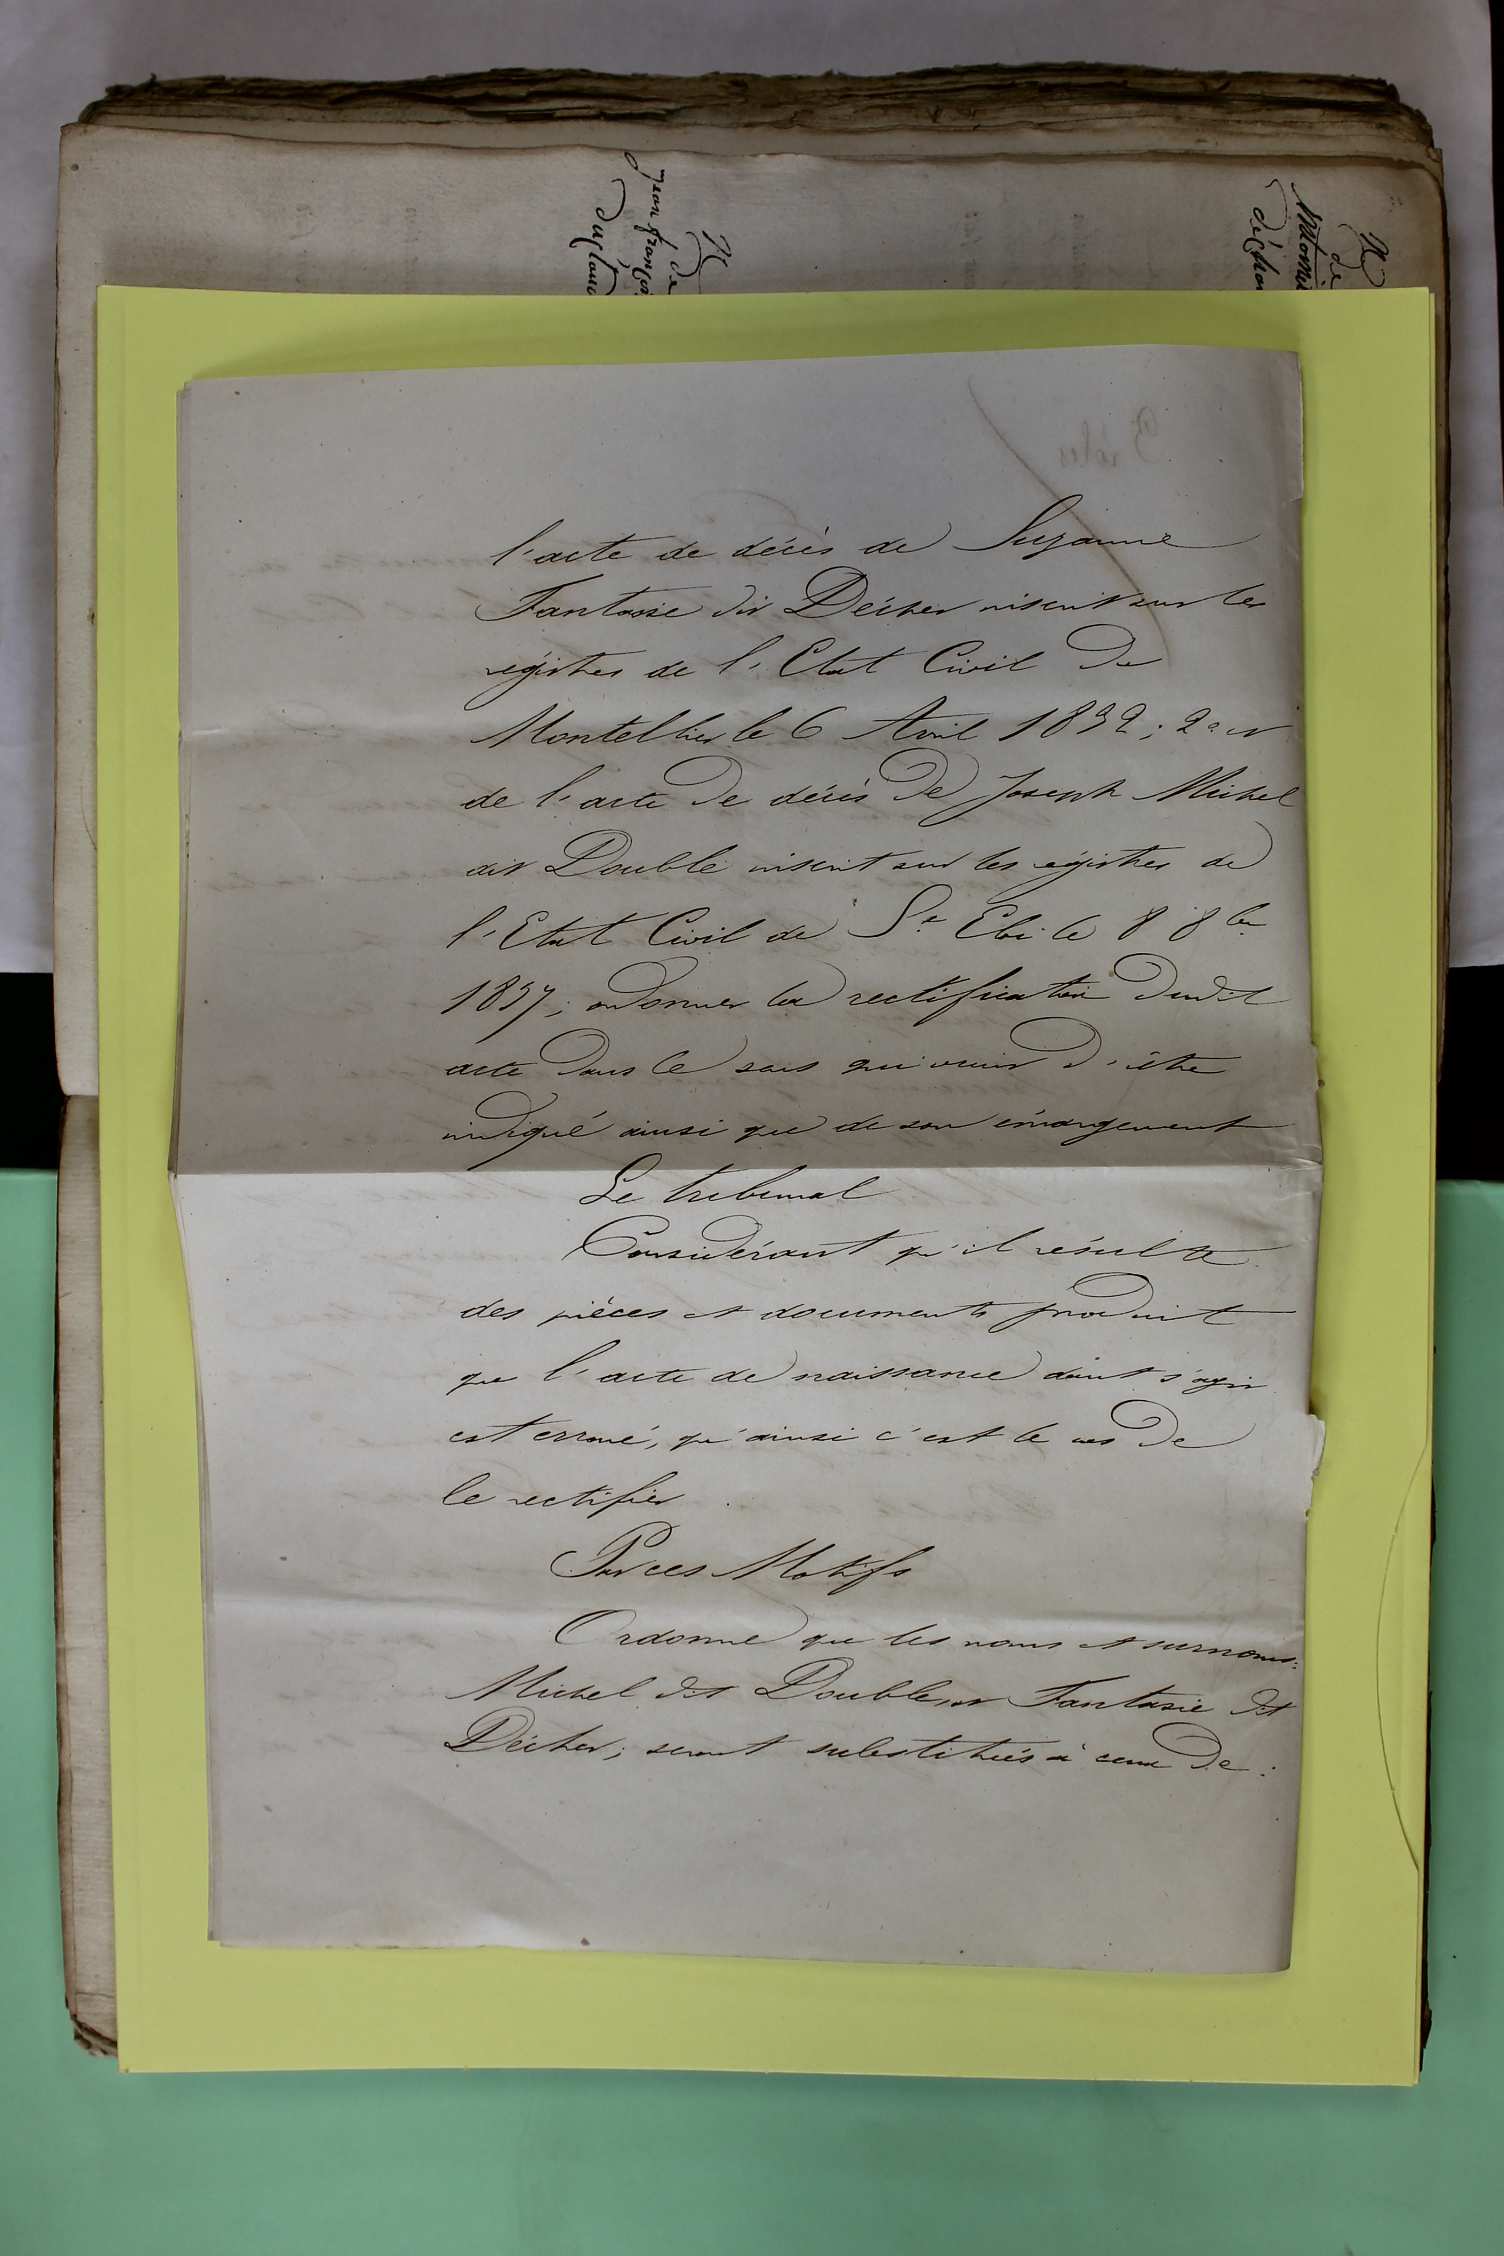 N
de
Jean françois
N
de
l'acte de décès de Suzanne
Fantasie dit Décher inscrit sur les
régistres de l'Etat Civil de
Montellier le 6 Avril 1832; 2° et
de l'acte de décès de Joseph Michel
dit Double inscrit sur les régistres de
l'Etat Civil de St Eloi le 8 8bre
1837; ordonner la rectification dudit
acte dans le sens qui vient d'être
indiqué ainsi que de son émargement
Le tribunal
Considérant qu'il résulte
des pièces et documents produit
que l'acte de naissance dont s'agit
est erroné, qu'ainsi c'est le cas de
le rectifier
Par ces Motifs
Ordonne que les noms et surnoms:
Michel dit Double, et Fantasie dit
Décher; seront substitués à ceux de: